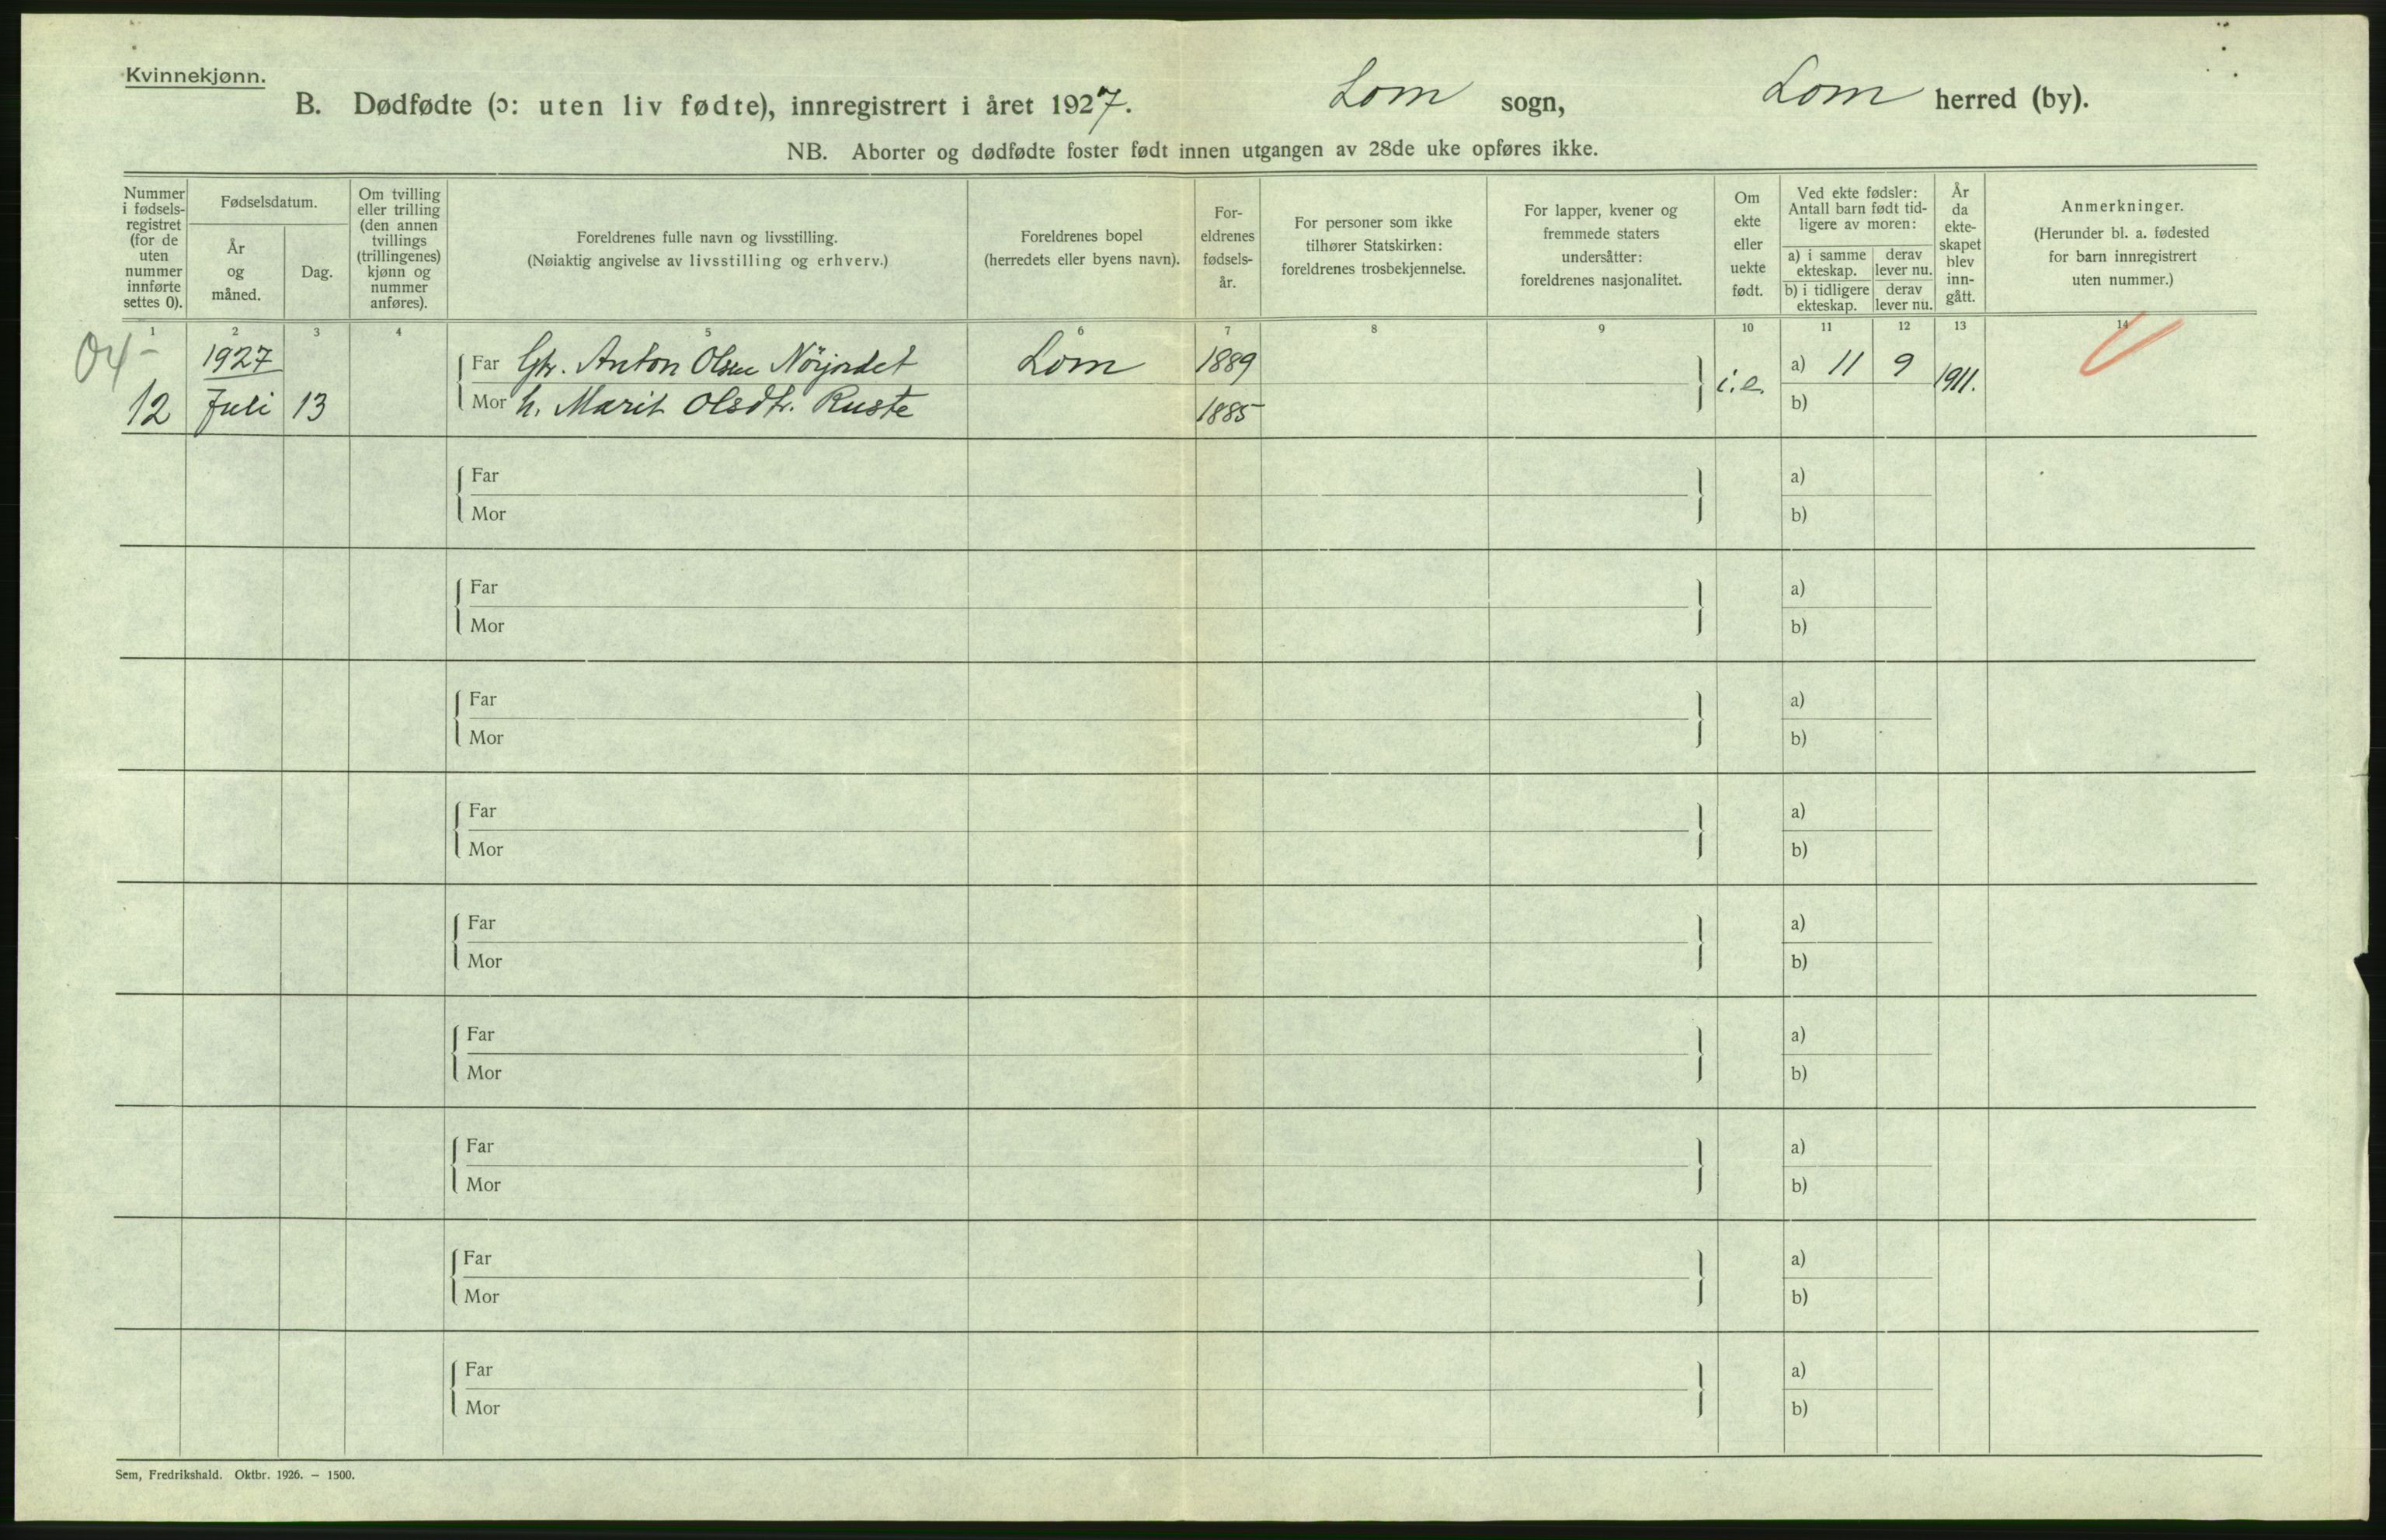 Kvinnekjønn.
B. Dødfødte (ɔ: uten liv fødte), innregistrert i året 1927. Lom sogn, Lom herred (by).
NB. Aborter og dødfødte foster født innen utgangen av 28de uke opføres ikke.
Nummer i fødsels-registret (for de uten nummer innførte settes 0).
Fødselsdatum.
År og måned.
Dag.
Om tvilling eller trilling (den annen tvillings (trillingenes) kjønn og nummer anføres).
Foreldrenes fulle navn og livsstilling.
(Nøiaktig angivelse av livsstilling og erhverv.)
Foreldrenes bopel
(herredets eller byens navn).
For-eldrenes fødsels-år.
For personer som ikke tilhører Statskirken: foreldrenes trosbekjennelse.
For lapper, kvener og fremmede staters undersåtter: foreldrenes nasjonalitet.
Om ekte eller uekte født.
Ved ekte fødsler: Antall barn født tid-ligere av moren:
a) i samme ekteskap. derav lever nu.
b) i tidligere ekteskap. derav lever nu.
År da ekte-skapet blev inn-gått.
Anmerkninger.
(Herunder bl. a. fødested for barn innregistrert uten nummer.)
1 2 3 4 5 6 7 8 9 10 11 12 13 14
04-
1927
Far Gbr. Anton Olsen Nörjordet Lom 1889 i.e. a) 11 9 1911.
12 Juli 13 Mor h. Marit Olsdtr. Ruste 1885 b)
Far a)
Mor b)
Far a)
Mor b)
Far a)
Mor b)
Far a)
Mor b)
Far a)
Mor b)
Far a)
Mor b)
Far a)
Mor b)
Far a)
Mor b)
Far a)
Mor b)
Sem, Fredrikshald. Oktbr. 1926. — 1500.